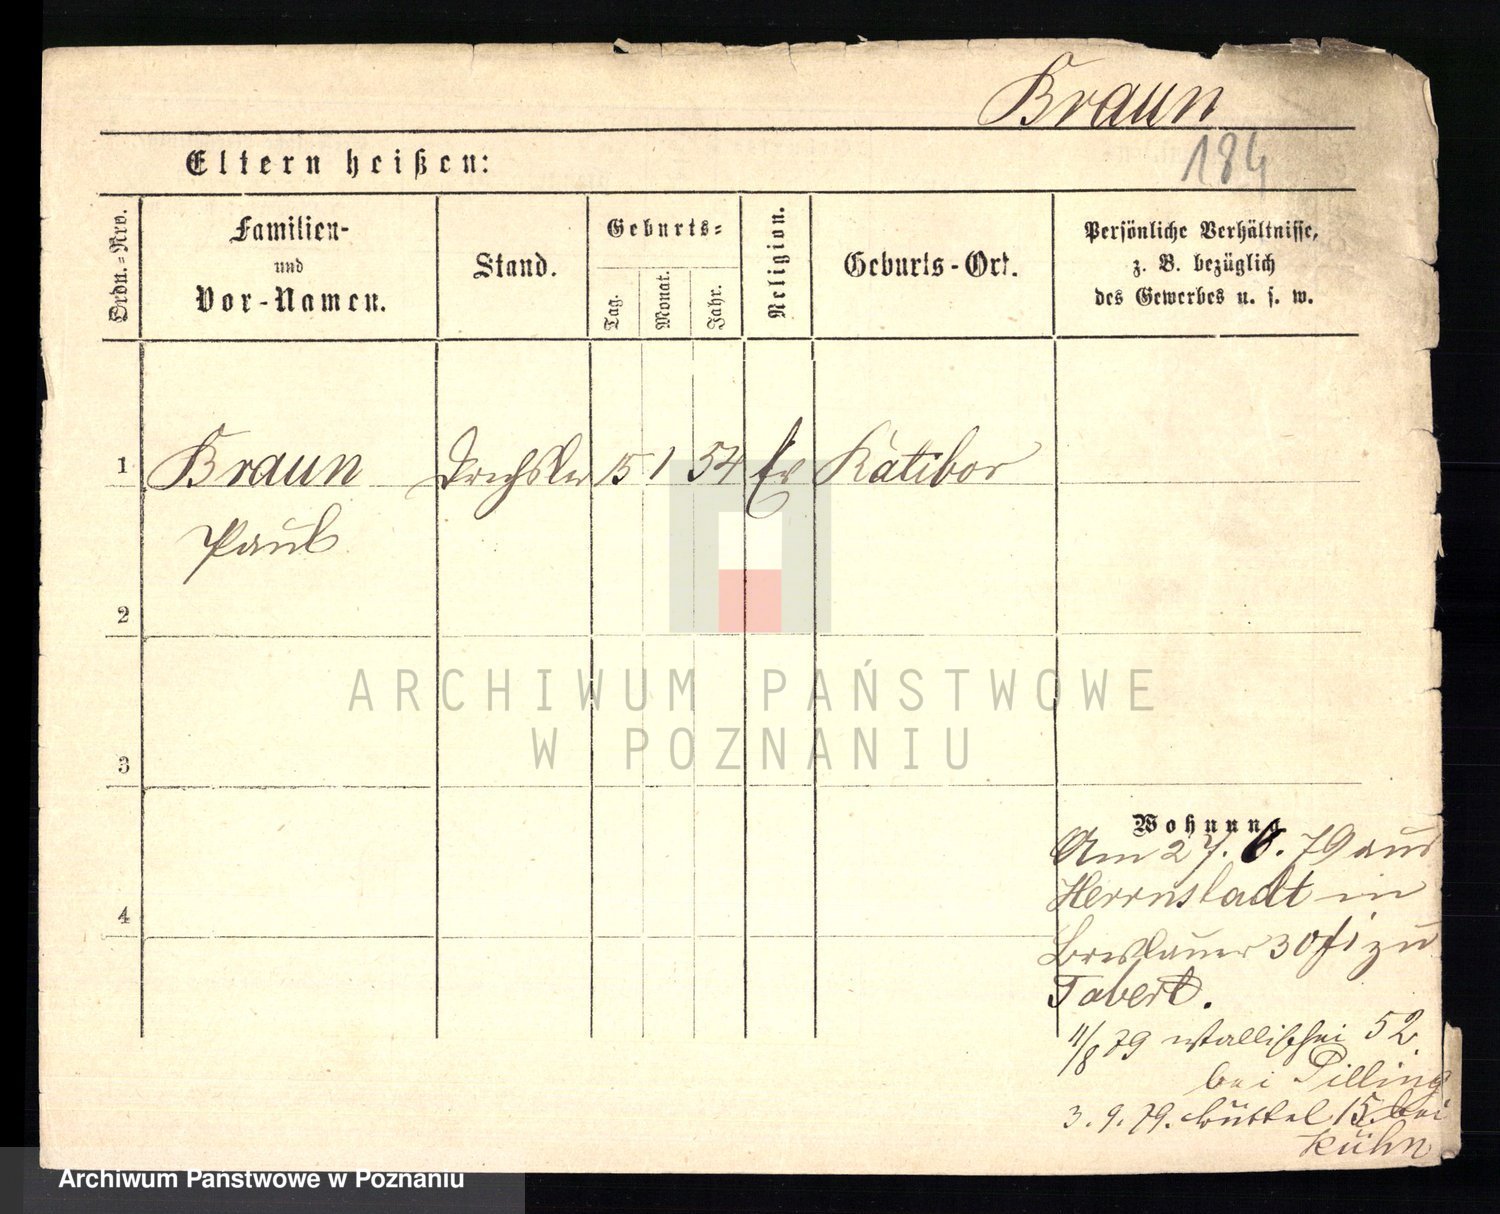 Braun
184
Eltern heißen:
Ordn.-Nro.
Familien-
und
Vor-Namen.
Stand.
Geburts-
Tag.
Monat.
Jahr.
Religion.
Geburts-Ort.
Persönliche Verhältnisse,
z. B. bezüglich
des Gewerbes u. s. w.
1 Braun Drechsler 15 1 54 Ev Ratibor
Paul
2
3
4
ARCHIWUM PAŃSTWOWE
W POZNANIU
Wohnung
Am 27. 6. 79 aus
Herrnstadt in
Breslauer 30 bei zu
Tabert.
11/8 79 Wallischei 52
bei Pilling
3. 9. 79. Büttel 15. bei
Kühn
Archiwum Państwowe w Poznaniu